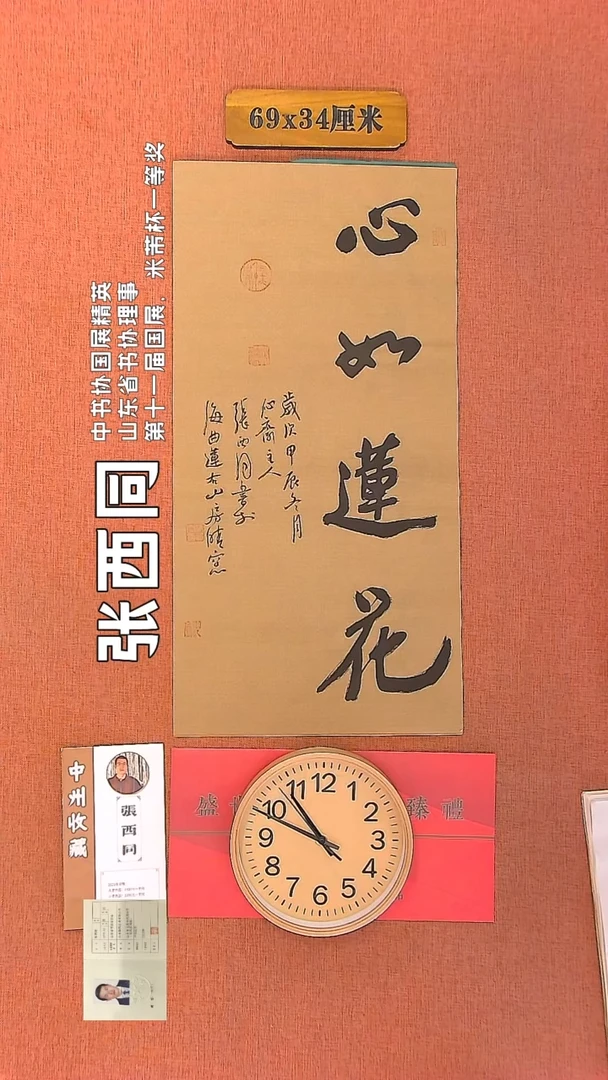 69x34厘米
心如蓮花
歲次甲辰冬月
心齋主人
張西同書於
海曲蓮右山房晴窗
中书协国展精英
山东省书协理事
第十一届国展，米芾杯一等奖
张西同
張西同
盛世臻禮
12
1
2
3
4
5
6
7
8
9
10
11